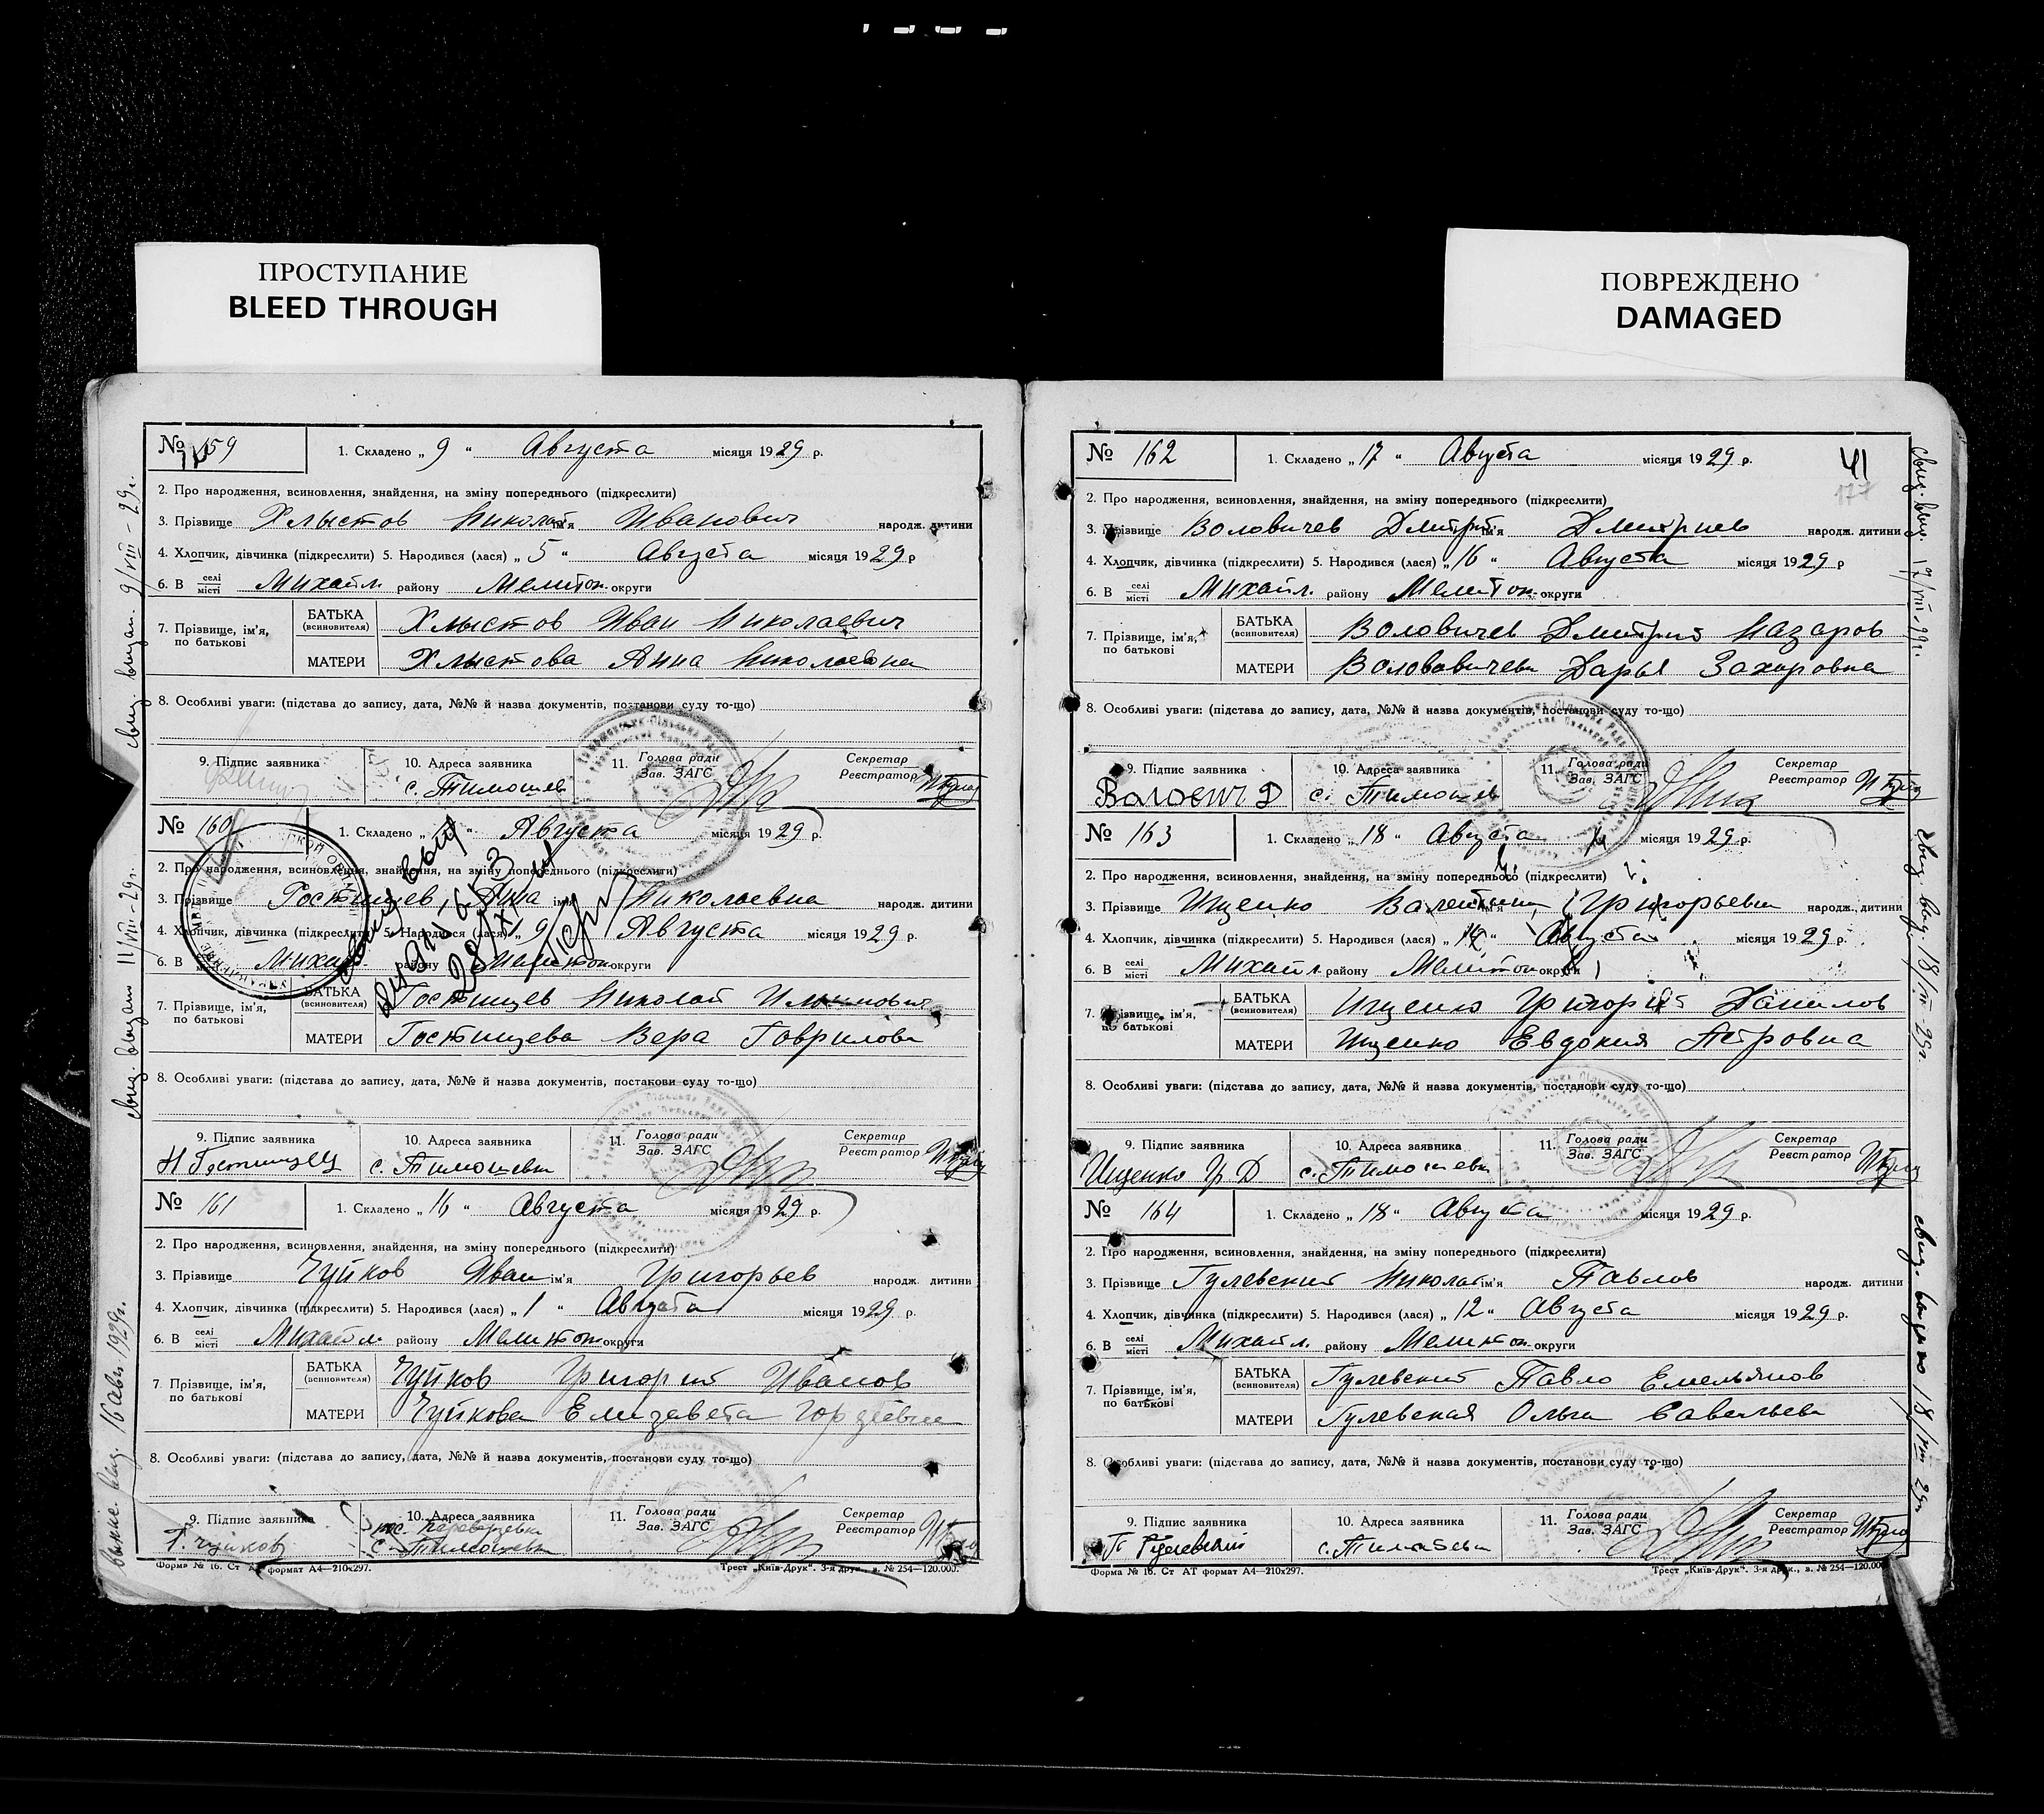 ПРОСТУПАНИЕ
BLEED THROUGH
ПОВРЕЖДЕНО
DAMAGED
№ 159
1. Складено „ 9 “ Августа місяця 1929 р.
2. Про народження, всиновлення, знайдення, на зміну попереднього (підкреслити)
3. Прізвище Хлыстов Николай ім'я Иванович народж. дитини
4. Хлопчик, дівчинка (підкреслити) 5. Народився (лася) „ 5 “ Августа місяця 1929 р
6. В селі місті Михайл. району Мелитоп. округи
7. Прізвище, ім'я, по батькові
БАТЬКА (всиновителя) Хлыстов Иван Николаевич
МАТЕРИ Хлыстова Анна Николаевна
8. Особливі уваги: (підстава до запису, дата, №№ й назва документів, постанови суду то-що)
9. Підпис заявника
10. Адреса заявника
с. Тимошев
11. Голова ради Зав. ЗАГС
Секретар Реєстратор
свид. выдан. 9/VIII-29г.
№ 160
1. Складено „ 11 “ Августа місяця 1929 р.
2. Про народження, всиновлення, знайдення, на зміну попереднього (підкреслити)
3. Прізвище Гостищев, Анна ім'я Николаевна народж. дитини
4. Хлопчик, дівчинка (підкреслити) 5. Народився (лася) „ 9 “ Августа місяця 1929 р.
6. В місті Михайл району Мелитоп округи
7. Прізвище, ім'я, по батькові
БАТЬКА (всиновителя) Гостищев Николай
МАТЕРИ Гостищева Вера Гаврилова
8. Особливі уваги: (підстава до запису, дата, №№ й назва документів, постанови суду то-що)
9. Підпис заявника
10. Адреса заявника
с. Тимошевка
11. Голова ради Зав. ЗАГС
Секретар Реєстратор
свид. выдан 11/VIII-29г.
№ 161
1. Складено „ 16 “ Августа місяця 1929 р.
2. Про народження, всиновлення, знайдення, на зміну попереднього (підкреслити)
3. Прізвище Чуйков Иван ім'я Григорьев народж. дитини
4. Хлопчик, дівчинка (підкреслити) 5. Народився (лася) „ 1 “ Августа місяця 1929 р.
6. В селі місті Михайл. району Мелитоп округи
7. Прізвище, ім'я, по батькові
БАТЬКА (всиновителя) Чуйков Григорий Иванов
МАТЕРИ Чуйкова Елизавета
8. Особливі уваги: (підстава до запису, дата, №№ й назва документів, постанови суду то-що)
9. Підпис заявника
Г. Чуйков
10. Адреса заявника
с. Тимошевка
11. Голова ради Зав. ЗАГС
Секретар Реєстратор
16 Авг. 1929г.
Форма № 16. Ст АТ формат А4—210х297.
Трест „Київ-Друк“. 3-я друк., з. № 254—120.000.
№ 162
1. Складено „ 17 “ Августа місяця 1929 р.
41
177
2. Про народження, всиновлення, знайдення, на зміну попереднього (підкреслити)
3. Прізвище Воловичев Дмитрий ім'я Дмитриев народж. дитини
4. Хлопчик, дівчинка (підкреслити) 5. Народився (лася) „ 16 “ Августа місяця 1929 р
6. В селі місті Михайл. району Мелитоп. округи
7. Прізвище, ім'я, по батькові
БАТЬКА (всиновителя) Воловичев Дмитрий Назаров
МАТЕРИ Дарья Захаровна
8. Особливі уваги: (підстава до запису, дата, №№ й назва документів, постанови суду то-що)
9. Підпис заявника
10. Адреса заявника
с. Тимошев
11. Голова ради Зав. ЗАГС
Секретар Реєстратор
свид. выд. 17/VIII-29г.
№ 163
1. Складено „ 18 “ Августа місяця 1929 р.
2. Про народження, всиновлення, знайдення, на зміну попереднього (підкреслити)
3. Прізвище Ищенко Валентина ім'я Григорьевна народж. дитини
4. Хлопчик, дівчинка (підкреслити) 5. Народився (лася) „ 14 “ Августа місяця 1929 р.
6. В селі місті Михайл. району Мелитоп округи
7. Прізвище, ім'я, по батькові
БАТЬКА (всиновителя) Ищенко Григорий Данилов
МАТЕРИ Ищенко Евдокия Петровна
8. Особливі уваги: (підстава до запису, дата, №№ й назва документів, постанови суду то-що)
9. Підпис заявника
Ищенко Гр Д
10. Адреса заявника
с. Тимошевка
11. Голова ради Зав. ЗАГС
Секретар Реєстратор
свид. выд. 18/VIII-29г.
№ 164
1. Складено „ 18 “ Августа місяця 1929 р.
2. Про народження, всиновлення, знайдення, на зміну попереднього (підкреслити)
3. Прізвище Гулевский Николай ім'я Павлов народж. дитини
4. Хлопчик, дівчинка (підкреслити) 5. Народився (лася) „ 12 “ Августа місяця 1929 р.
6. В селі місті Михайл. району Мелитоп. округи
7. Прізвище, ім'я, по батькові
БАТЬКА (всиновителя) Гулевский Павло Емельянов
МАТЕРИ Гулевская Ольга Савельева
8. Особливі уваги: (підстава до запису, дата, №№ й назва документів, постанови суду то-що)
9. Підпис заявника
10. Адреса заявника
с. Тимошевка
11. Голова ради Зав. ЗАГС
Секретар Реєстратор
свид. выдано 18/VIII 29г.
Форма № 16. Ст АТ формат А4—210х297.
Трест „Київ-Друк“. 3-я друк., з. № 254—120.000